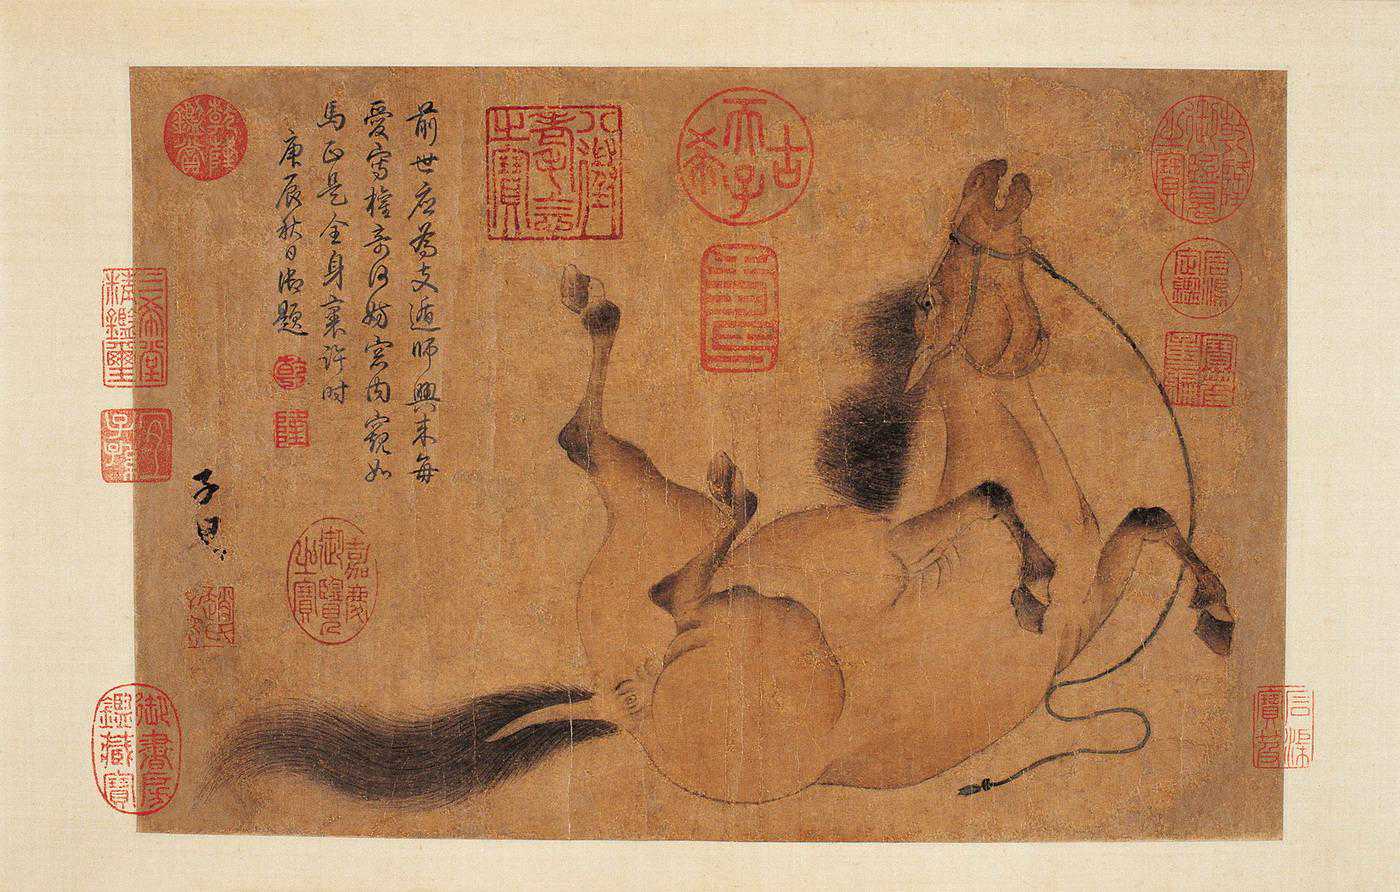 乾隆御覽之寶
石渠定鑑
寶笈重編
石渠寶笈
古希天子
八徵耄念之寶
前世應為支遁師興來每
愛寫權奇何妨窓內窺如
馬正是全身裏許時
庚辰秋日御題
乾
隆
嘉慶御覽之寶
乾隆鑑賞
子昂
三希堂精鑑璽
宜子孫
御書房鑑藏寶